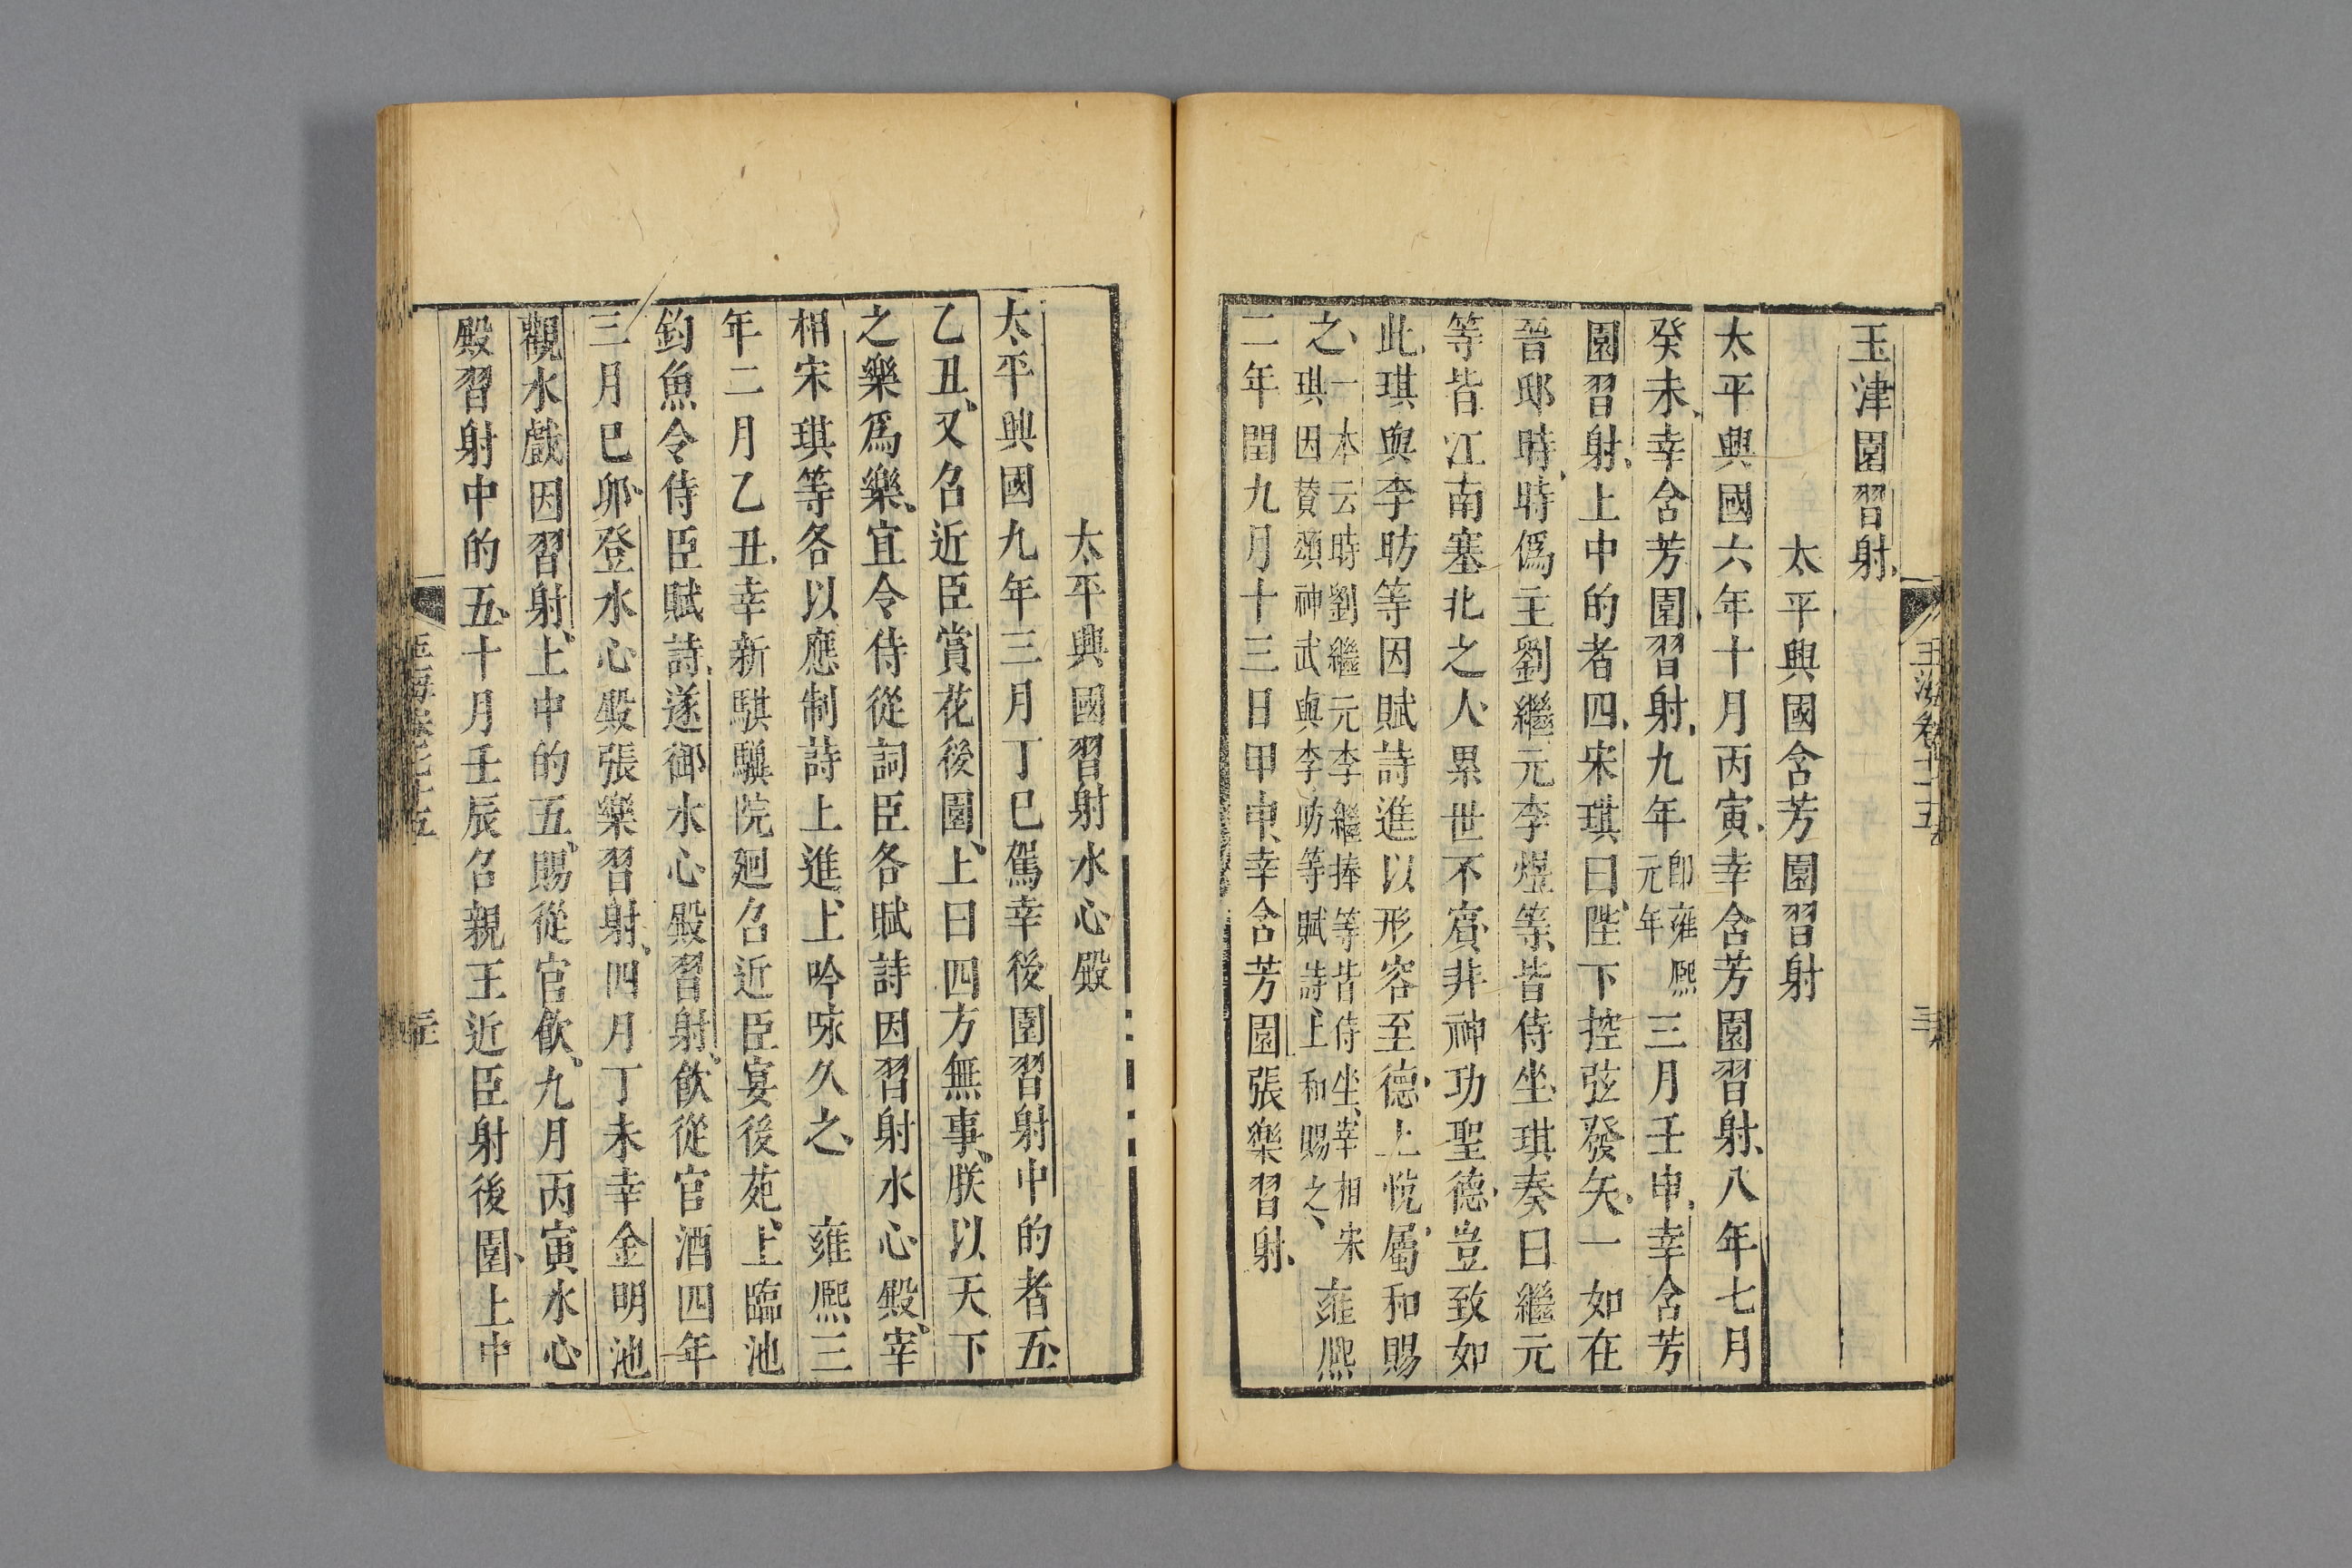 玉津園習射
太平興國含芳園習射
太平興國六年十月丙寅幸含芳園習射八年七月
癸未幸含芳園習射九年即雍熙元年三月壬申幸含芳
園習射上中的者四宋琪曰陛下控弦發矢一如在
晉邸時時僞主劉繼元李煜等皆侍坐琪奏曰繼元
等皆江南塞北之人累世不賔非神功聖德豈致如
此琪與李昉等因賦詩進以形容至德上悅屬和賜
之一本云時劉繼元李繼捧等皆侍坐宰相宋琪因賛頌神武與李昉等賦詩上和賜之雍熙
二年閏九月十三日甲申幸含芳園張樂習射
太平興國習射水心殿
太平興國九年三月丁巳駕幸後園習射中的者五
乙丑又召近臣賞花後園上曰四方無事朕以天下
之樂爲樂宜令侍從詞臣各賦詩因習射水心殿宰
相宋琪等各以應制詩上進上吟咏久之 雍熙三
年二月乙丑幸新騏驥院廻召近臣宴後苑上臨池
釣魚令侍臣賦詩遂御水心殿習射飲從官酒四年
三月己卯登水心殿張樂習射四月丁未幸金明池
觀水戲因習射上中的五賜從官飲九月丙寅水心
殿習射中的五十月壬辰召親王近臣射後園上中